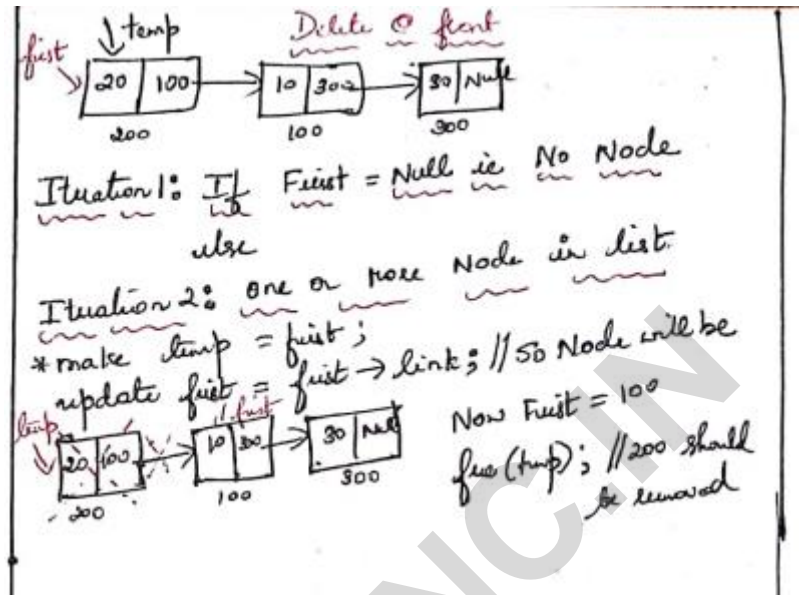 Delete @ front
temp
first
20 100 10 300 30 Null
200 100 300
Iteration 1: If First = Null ie No Node
else
Iteration 2: one or more Node in list.
* make temp = first;
update first = first → link; // So Node will be
Now First = 100
temp first
20 100 10 300 30 Null
200 100 300
free(temp); // 200 should
be removed
NC.IN